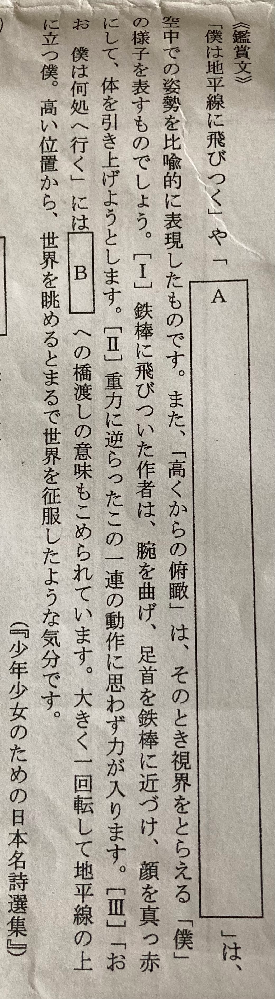 《鑑賞文》
「僕は地平線に飛びつく」や「 A 」は、
空中での姿勢を比喩的に表現したものです。また、「高くからの俯瞰」は、そのとき視界をとらえる「僕」
の様子を表すものでしょう。［Ⅰ］鉄棒に飛びついた作者は、腕を曲げ、足首を鉄棒に近づけ、顔を真っ赤
にして、体を引き上げようとします。［Ⅱ］重力に逆らったこの一連の動作に思わず力が入ります。［Ⅲ］「お
お　僕は何処へ行く」には B への橋渡しの意味もこめられています。大きく一回転して地平線の上
に立つ僕。高い位置から、世界を眺めるとまるで世界を征服したような気分です。
（『少年少女のための日本名詩選集』）